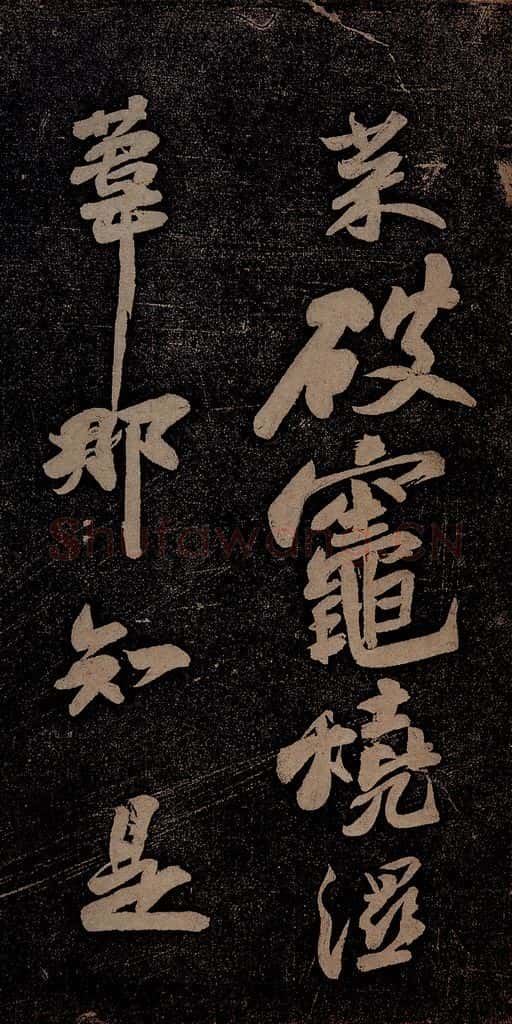 菜破竈燒濕
葦那知是
Shufawang.CN